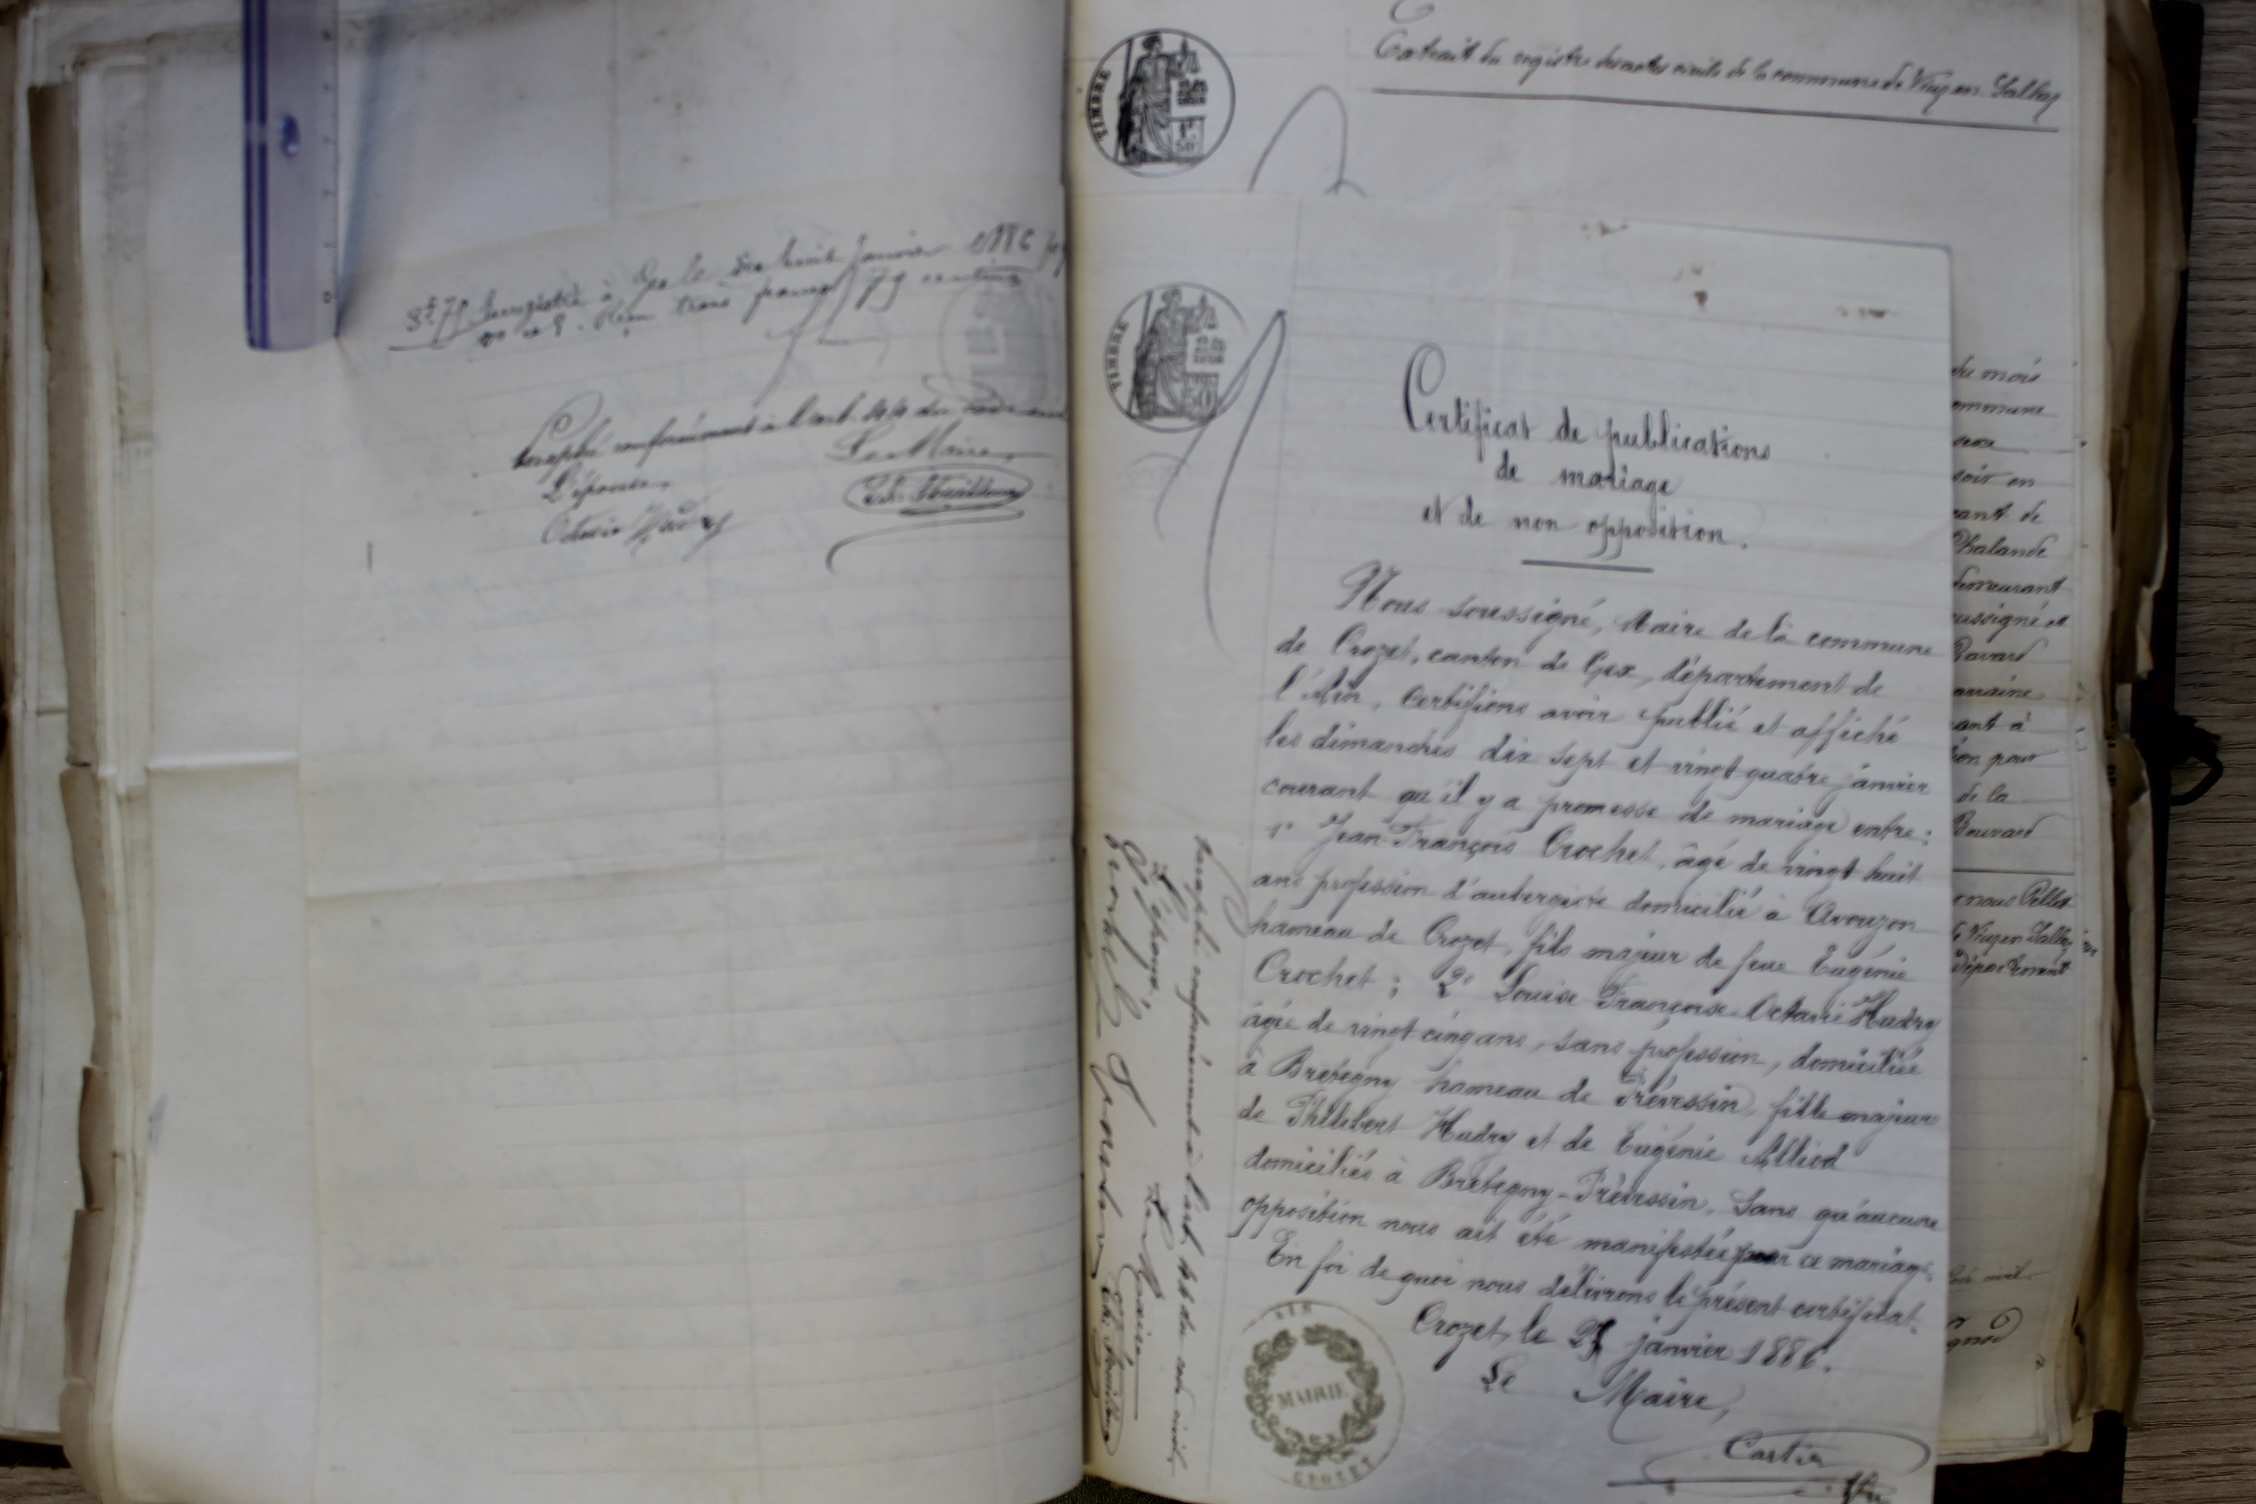 Enregistré à Gex le dix huit janvier 1886
Reçu trois francs 79 centimes
Paraphé conformément à l'art. 44 du Code
Le Maire
L'épouse,
Octavie Hudry
Extrait du registre des actes civils de la commune de Viuz-en-Sallaz
TIMBRE
1F
50
TIMBRE
50
Certificat de publications
de mariage
et de non opposition.
Nous soussigné, Maire de la commune
de Crozet, canton de Gex, département de
l'Ain, certifions avoir publié et affiché
les dimanches dix sept et vingt quatre janvier
courant qu'il y a promesse de mariage entre :
1° Jean François Crochet, âgé de vingt huit
ans profession d'aubergiste domicilié à Avouzon
hameau de Crozet, fils majeur de feue Eugénie
Crochet ; 2° Louise Françoise Octavie Hudry
âgée de vingt cinq ans, sans profession, domiciliée
à Bretegny hameau de Prévessin, fille majeure
de Philibert Hudry et de Eugénie Alliod
domiciliés à Bretegny-Prévessin. Sans qu'aucune
opposition nous ait été manifestée pour ce mariage.
En foi de quoi nous délivrons le présent certificat.
Crozet, le 25 janvier 1886.
Le Maire,
Cartier
MAIRIE
CROZET
Paraphé conformément à l'art. 44 du code civil
L'épouse,
Le Maire
du mois
commune
soir en
Chalande
demeurant
Bavard
de la
Bouvard
nous Pellet
Viuz en Sallaz
département